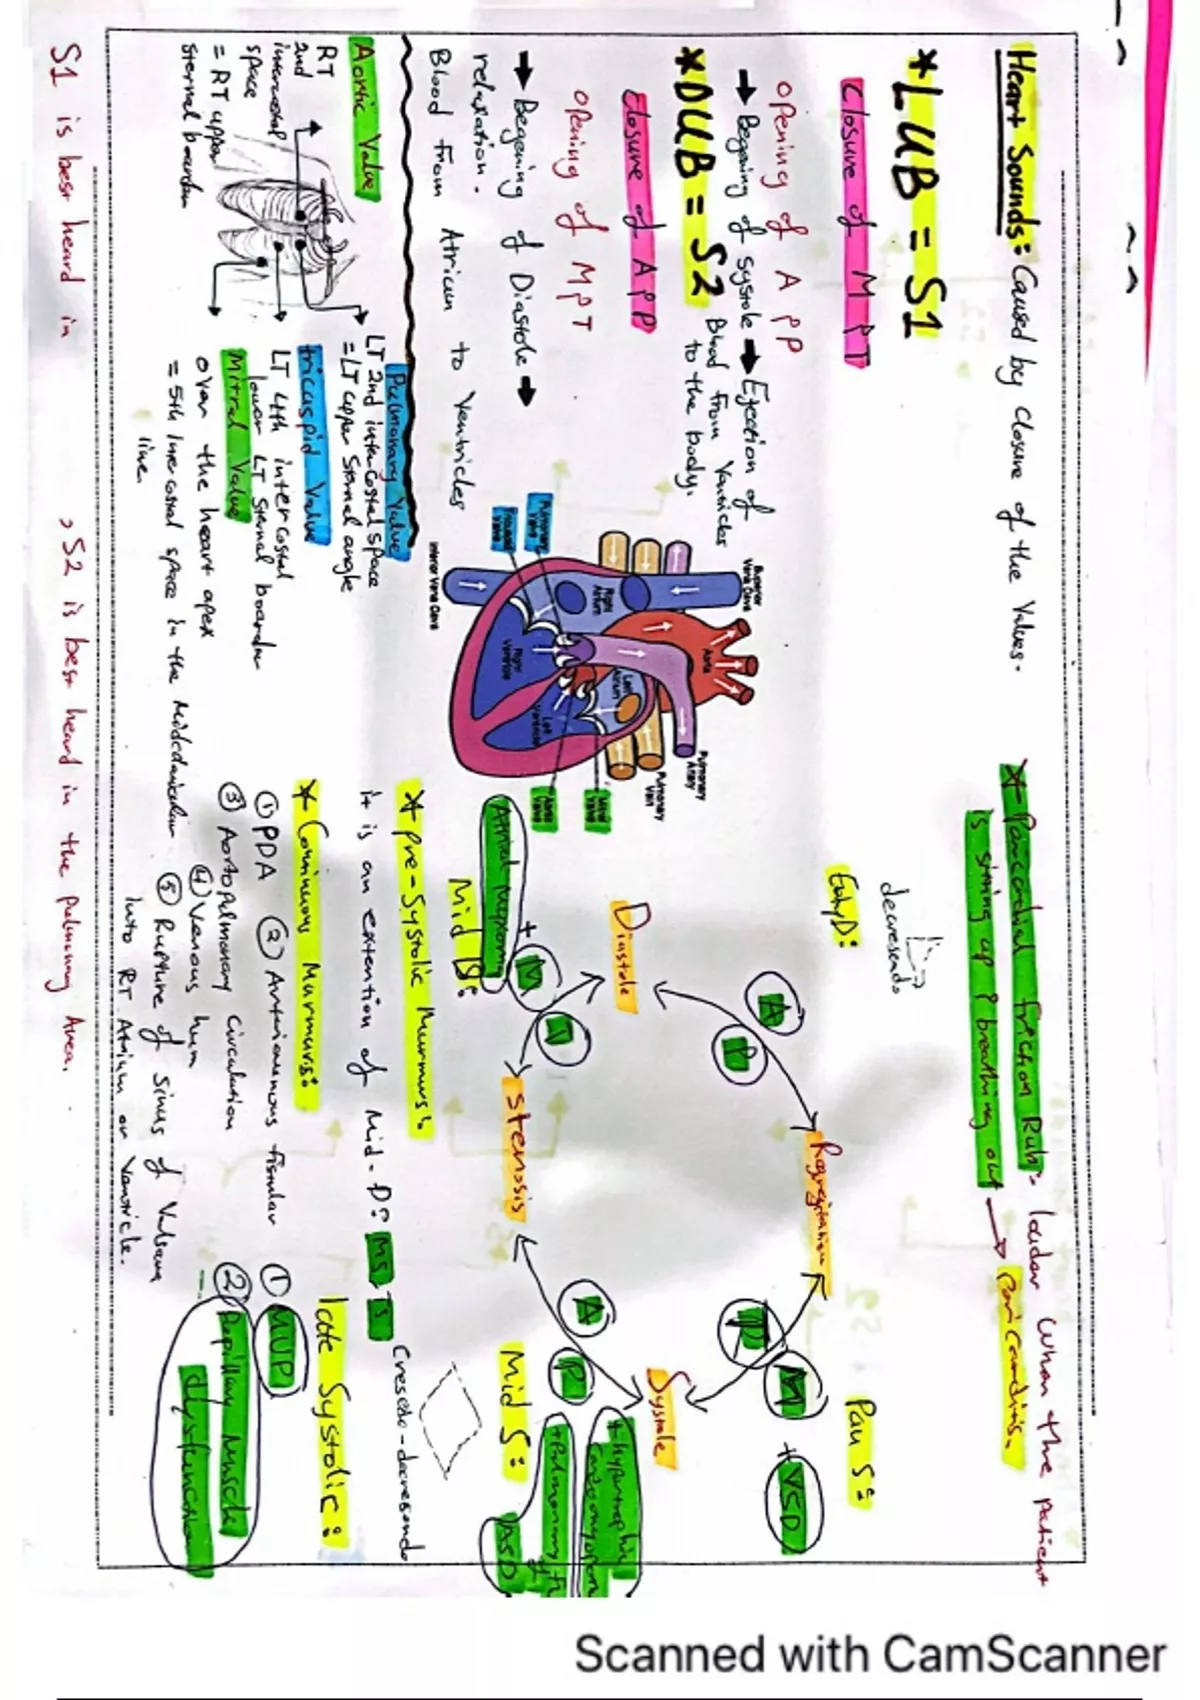 Heart Sounds: Caused by closure of the Valves.
*LUB = S1
Closure of M PT
opening of A PP
→ Begening of systole → Ejection of
Blood from Ventricles
to the body.
*DUB = S2
Closure of A PP
opening of MPT
→ Begening of Diastole →
relaxation.
Blood from Atrium to Ventricles
Superior
Vena Cava
Aorta
Pulmonary
Artery
Pulmonary
Vein
Right
Atrium
Left
Atrium
Mitral
Valve
Aortic
Valve
Left
Ventricle
Right
Ventricle
Pulmonary
Valve
Tricuspid
Valve
Inferior Vena Cava
Aortic Valve
RT
2nd
intercostal
space
= RT upper
sternal boarder
Pulmonary Valve
LT 2nd intercostal space
= LT upper sternal angle
tricuspid Valve
LT 4th intercostal
lower LT sternal boarder
Mitral Valve
over the heart apex
= 5th intercostal space in the Midclavicular
line
S1 is best heard in
, S2 is best heard in the pulmonary Area.
* Parcordial friction Rub: louder when the patient
is sitting up & breathing out → Pericarditis.
decresendo
Early D:
Pan S:
Regregitation
A
P
T
M
+ VSD
Diastole
Systole
Atrial myxoma
+
M
T
Mid D:
stenosis
A
P
Mid S:
+ hypertrophic
+ Pulmonary
ASD
* Pre-Systolic Murmurs:
it is an extention of Mid-D: MS, TS
Cresendo-decresendo
* Continuous Murmurs:
① PDA ② Arteriovenous fistular
③ Aortopulmonary Circulation
④ Venous hum
⑤ Rupture of sinus of Valsava
into RT Atrium or Ventricle.
late Systolic:
① MVP
② Papillary muscle
dysfunction
Scanned with CamScanner